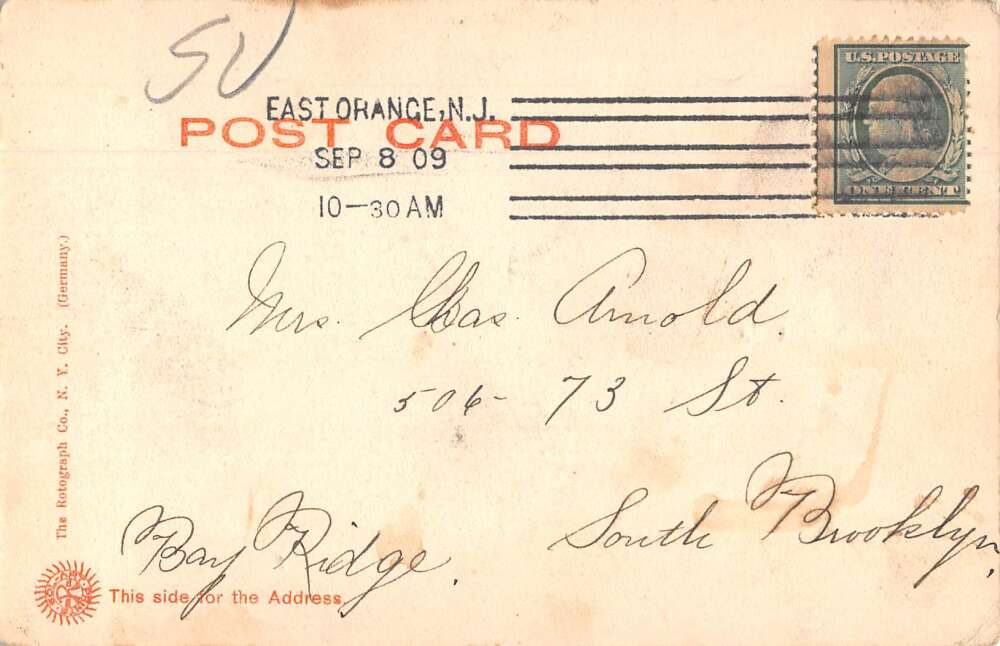 SU
U.S. POSTAGE
EAST ORANGE, N.J.
POST CARD
SEP 8 09
10-30 AM
ONE CENT
Mrs. Chas. Arnold.
506- 73 St.
Bay Ridge. South Brooklyn,
The Rotograph Co., N. Y. City. (Germany.)
This side for the Address.